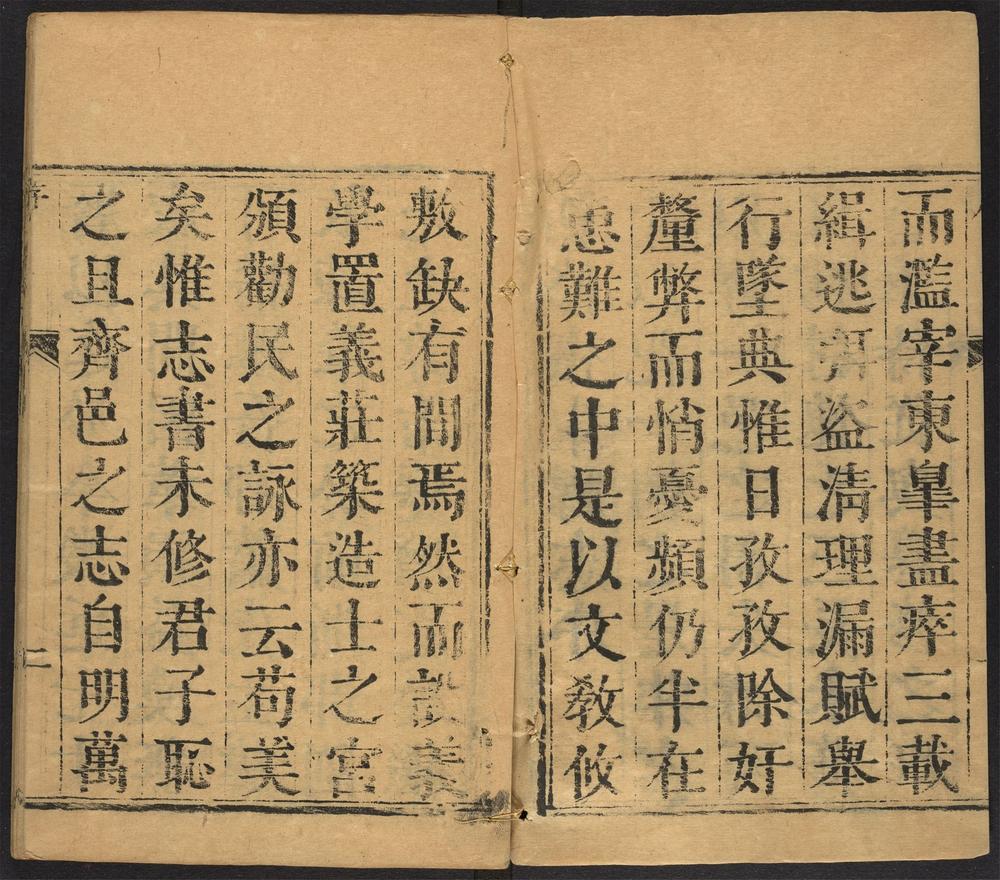 而濫宰東臯盡瘁三載
緝逃弭盜清理漏賦舉
行墜典惟日孜孜除奸
釐弊而悄憂頻仍半在
患難之中是以文教攸
敷缺有間焉然而設義
學置義莊築造士之宮
頒勸民之詠亦云苟美
矣惟志書未修君子恥
之且齊邑之志自明萬
二